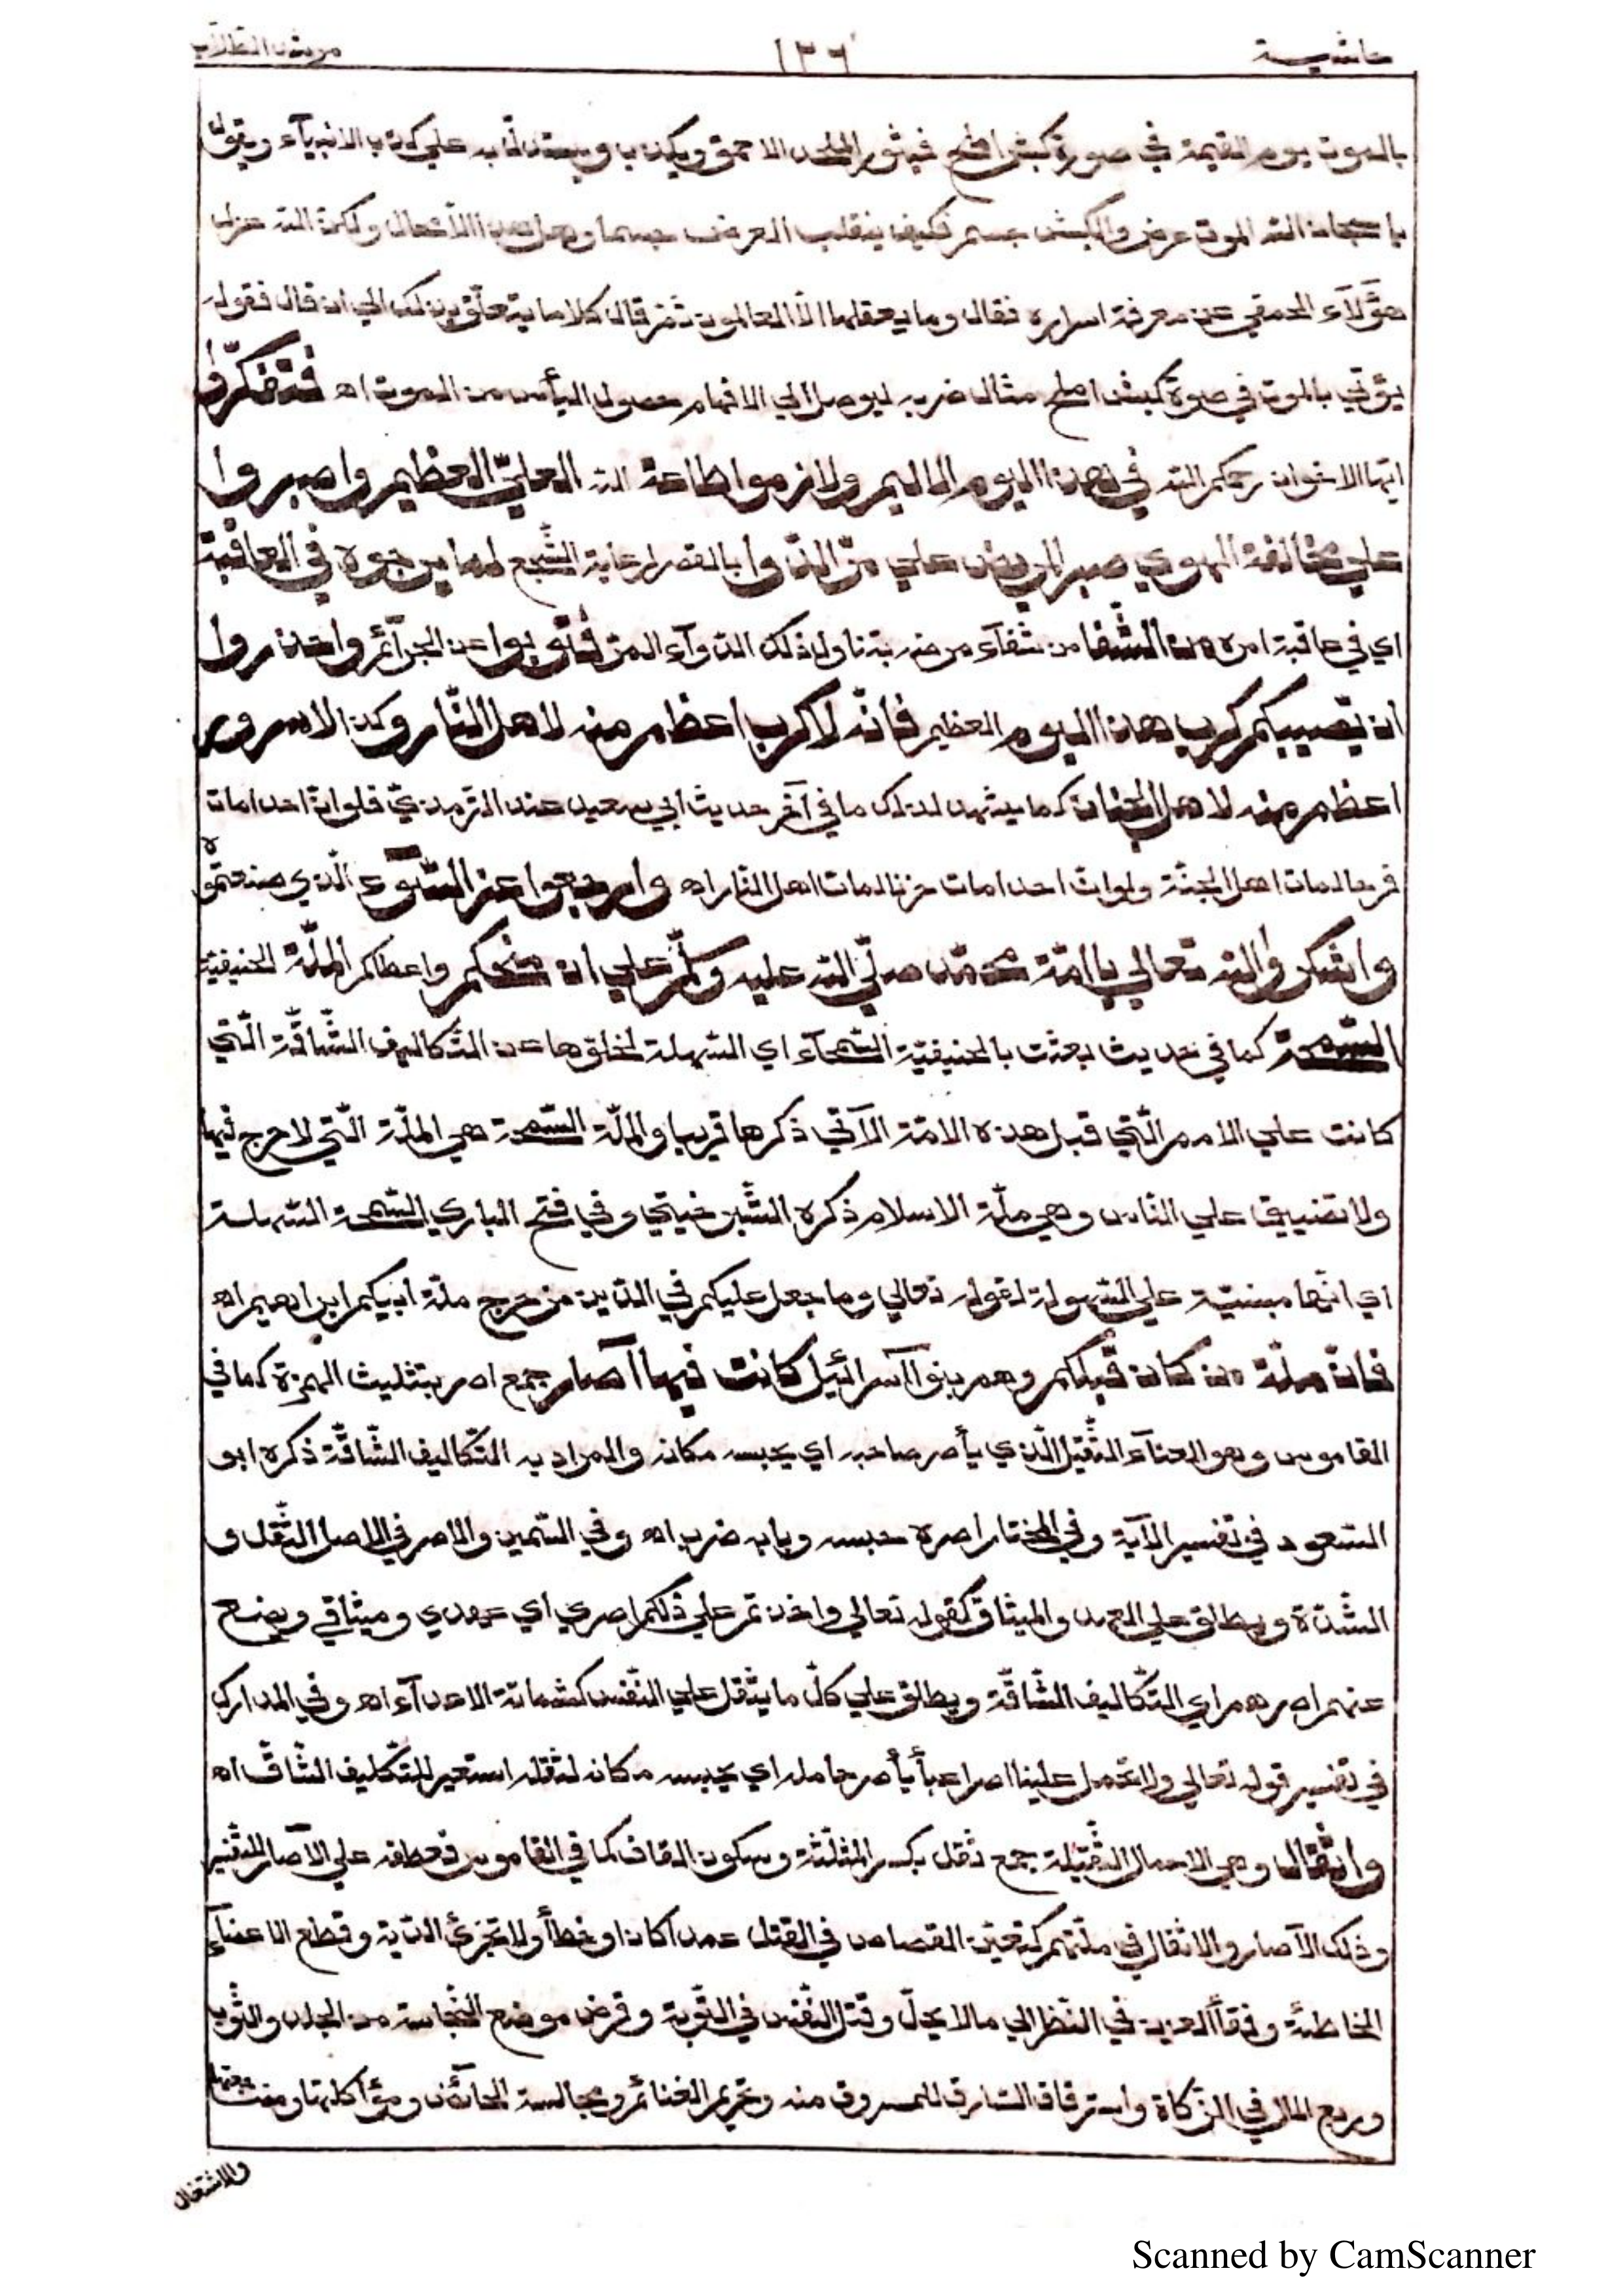 حاشية ١٣٦ مرشد الطلاب
بالموت يوم القيمة في صورة كبش املح فيثور الملحد الاحمق ويكذب ويستدل به على كذب الانبيآء ويقول
يا سبحان الله الموت عرض والكبش جسم فكيف ينقلب العرض جسما وهل هذا الا محال ولكن الله عزل
هؤلآء الحمقي عن معرفة اسراره فقال وما يعقلها الا العالمون ثم قال كلاما يتعلق بذلك الي ان قال فقوله
يؤتي بالموت في صورة كبش املح مثال ضربه ليوصل الي الافهام حصول اليأس من الموت اه فتفكروا
ايها الاخوان رحمكم الله في هذا اليوم الاليم ولازموا طاعة الله العليّ العظيم واصبروا
علي مخالفة الهوي صبر المريض علي مرّ الدّوا بالقصر لرعاية السّجع لما يرجوه في العاقبة
اي في عاقبة امره من الشّفا من شفآء مرضه بتناول ذلك الدوآء المرّ فتوبوا عن الجرآئم واحذروا
ان تصيبكم كرب هذا اليوم العظيم فانّه لا كرب اعظم منه لاهل النّار وكذا لا سرور
اعظم منه لاهل الجنان كما يشهد لذلك ما في آخر حديث ابي سعيد عند الترمذيّ فلو ان احدا مات
فرحا لمات اهل الجنّة ولو انّ احدا مات حزنا لمات اهل النار اه وارجعوا عن السّوء الّذي صنعتموه
واشكروا الله تعالي يا امّة محمّد صلّي الله عليه وسلّم علي ان منحكم واعطاكم الملّة الحنيفيّة
السّمحة كما في حديث بعثت بالحنيفيّة السّمحآء اي السّهلة لخلوّها عن التّكاليف الشّاقّة الّتي
كانت علي الامم الّتي قبل هذه الامّة الآتي ذكرها قريبا والملّة السّمحة هي الملّة الّتي لا حرج فيها
ولا تضييق علي النّاس وهي ملّة الاسلام ذكره الشّبرخيتي وفي فتح الباري السّمحة السّهلة
اي انّها مبنيّة علي السّهولة لقوله تعالي وما جعل عليكم في الدّين من حرج ملّة ابيكم ابراهيم اه
فانّ ملّة من كان قبلكم وهم بنوا آسرائيل كانت فيها آصار جمع اصر بتثليث الهمزة كما في
القاموس وهو العنآء الثّقيل الّذي يأصر صاحبه اي يحبسه مكانه والمراد به التّكاليف الشّاقّة ذكره ابو
السّعود في تفسير الآية وفي المختار اصره حبسه وبابه ضرب اه وفي السّمين والاصر في الاصل الثّقل و
الشّدّة ويطلق علي العهد والميثاق كقوله تعالي واخذتم علي ذلكم اصري اي عهدي وميثاقي ويضع
عنهم اصرهم اي التّكاليف الشّاقّة ويطلق علي كلّ ما يثقل علي النّفس كشماتة الاعدآء اه وفي المدارك
في تفسير قوله تعالي ولا تحمل علينا اصرا عبأ يأصر حامله اي يحبسه مكانه لثقله استعير للتّكليف الشّاقّ اه
واثقال وهي الاحمال الثّقيلة جمع ثقل بكسر المثلّثة وسكون القاف كما في القاموس فعطفه علي الآصار للتّفسير
وذلك الآصار والاثقال في ملّتهم كتعيّن القصاص في القتل عمدا كان او خطأ ولا تجزئ الدّية وقطع الاعضآء
الخاطئة وفقأ العين في النّظر الي ما لا يحلّ وقتل النّفس في التّوبة وقرض موضع النّجاسة من الجلد والثّوب
وربع المال في الزّكاة واسترقاق السّارق للمسروق منه وتحريم الغنائم ومجالسة الحآئض ومؤاكلتها ومضاجعتها
والاشتغال
Scanned by CamScanner